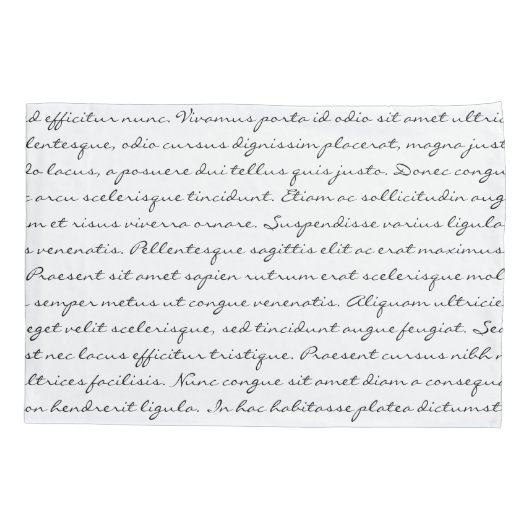 d efficitur nunc. Vivamus porta id odio sit amet ultric
lentesque, odio cursus dignissim placerat, magna just
do lacus, a posuere dui tellus quis justo. Donec congu
t arcu scelerisque tincidunt. Etiam ac sollicitudin aug
m et risus viverra ornare. Suspendisse varius ligula
s venenatis. Pellentesque sagittis elit ac erat maximus
Praesent sit amet sapien rutrum erat scelerisque mol
semper metus ut congue venenatis. Aliquam ultricie
eget velit scelerisque, sed tincidunt augue feugiat. Sed
st nec lacus efficitur tristique. Praesent cursus nibh
ltrices facilisis. Nunc congue sit amet diam a consequa
on hendrerit ligula. In hac habitasse platea dictumst